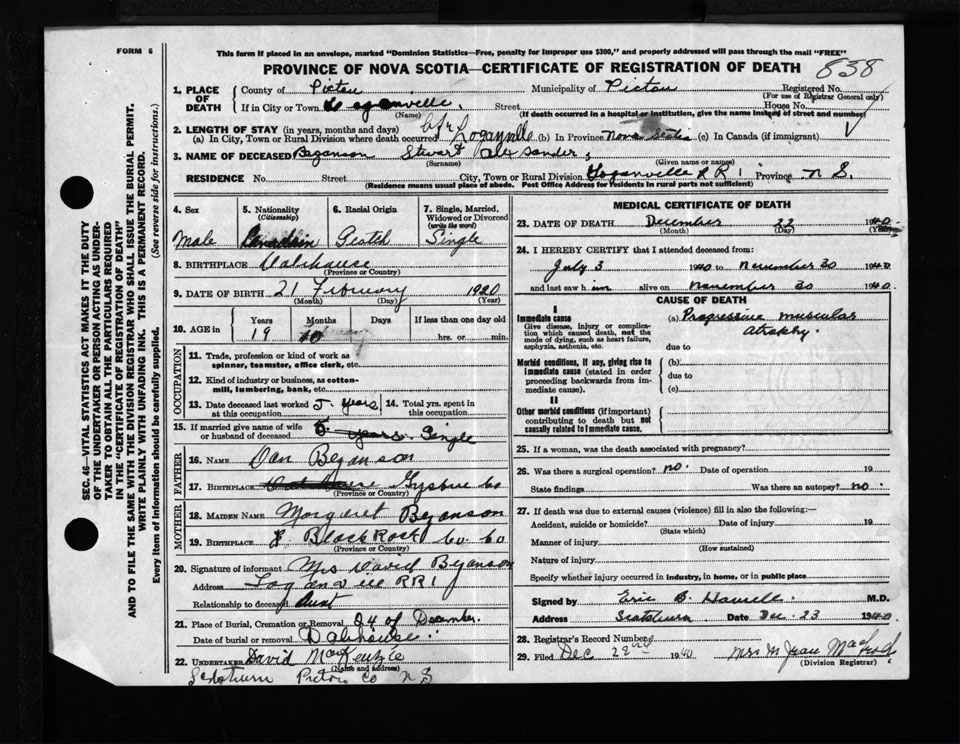 FORM 6
This form if placed in an envelope, marked "Dominion Statistics—Free, penalty for improper use $300," and properly addressed will pass through the mail "FREE"
PROVINCE OF NOVA SCOTIA—CERTIFICATE OF REGISTRATION OF DEATH
838
1. PLACE OF DEATH
County of Pictou Municipality of Pictou Registered No.
(For use of Registrar General only)
If in City or Town Loganville, Street House No.
(Name) (If death occurred in a hospital or institution, give the name instead of street and number)
2. LENGTH OF STAY (in years, months and days)
(a) In City, Town or Rural Division where death occurred Loganville (b) In Province Nova Scotia (c) In Canada (if immigrant)
3. NAME OF DECEASED Bezanson Stewart Alexander,
(Surname) (Given name or names)
RESIDENCE No. Street City, Town or Rural Division Loganville R R 1 Province N S.
(Residence means usual place of abode. Post Office Address for residents in rural parts not sufficient)
4. Sex
Male
5. Nationality
(Citizenship)
Canadian
6. Racial Origin
7. Single, Married, Widowed or Divorced
(write the word)
Single
8. BIRTHPLACE Dalhousie
(Province or Country)
9. DATE OF BIRTH 21 February 1920
(Month) (Day) (Year)
10. AGE in Years Months Days If less than one day old
19 10 hrs. or min.
OCCUPATION
11. Trade, profession or kind of work as spinner, teamster, office clerk, etc.
12. Kind of industry or business, as cotton-mill, lumbering, bank, etc.
13. Date deceased last worked at this occupation 5 years 14. Total yrs. spent in this occupation
15. If married give name of wife or husband of deceased 5 years. Single
FATHER
16. Name Dan Bezanson
17. Birthplace Gysbro Co
(Province or Country)
MOTHER
18. Maiden Name Margaret Bezanson
19. Birthplace Black Rock Co. Co
(Province or Country)
20. Signature of informant Mrs David Bezanson
Address Loganville RR 1
Relationship to deceased Aunt
21. Place of Burial, Cremation or Removal 24 of December.
Date of burial or removal Dalhousie.
22. Undertaker David MacKenzie
(Name and address)
Scotsburn Pictou Co N S
MEDICAL CERTIFICATE OF DEATH
23. DATE OF DEATH December 22 1940.
(Month) (Day) (Year)
24. I HEREBY CERTIFY that I attended deceased from:
July 3 1940 to November 30 1940
and last saw him alive on November 30 1940.
CAUSE OF DEATH
I
Immediate cause
Give disease, injury or complication which caused death, not the mode of dying, such as heart failure, asphyxia, asthenia, etc.
(a) Progressive muscular
atrophy.
due to
Morbid conditions, if any, giving rise to immediate cause (stated in order proceeding backwards from immediate cause).
(b)
due to
(c)
II
Other morbid conditions (if important) contributing to death but not causally related to immediate cause.
25. If a woman, was the death associated with pregnancy?
26. Was there a surgical operation? no. Date of operation 19
State findings Was there an autopsy? no.
27. If death was due to external causes (violence) fill in also the following:—
Accident, suicide or homicide? Date of injury 19
(State which)
Manner of injury
(How sustained)
Nature of injury
Specify whether injury occurred in industry, in home, or in public place
Signed by Eric B. M.D.
Address Scotsburn Date Dec 23 1940
28. Registrar's Record Number
29. Filed Dec 22nd 1940 Mrs M Jean
(Division Registrar)
SEC. 46—VITAL STATISTICS ACT MAKES IT THE DUTY
OF THE UNDERTAKER OR PERSON ACTING AS UNDER-
TAKER TO OBTAIN ALL THE PARTICULARS REQUIRED
IN THE "CERTIFICATE OF REGISTRATION OF DEATH" AND TO FILE THE SAME WITH THE DIVISION REGISTRAR WHO SHALL ISSUE THE BURIAL PERMIT.
WRITE PLAINLY WITH UNFADING INK. THIS IS A PERMANENT RECORD.
Every item of information should be carefully supplied. (See reverse side for instructions.)